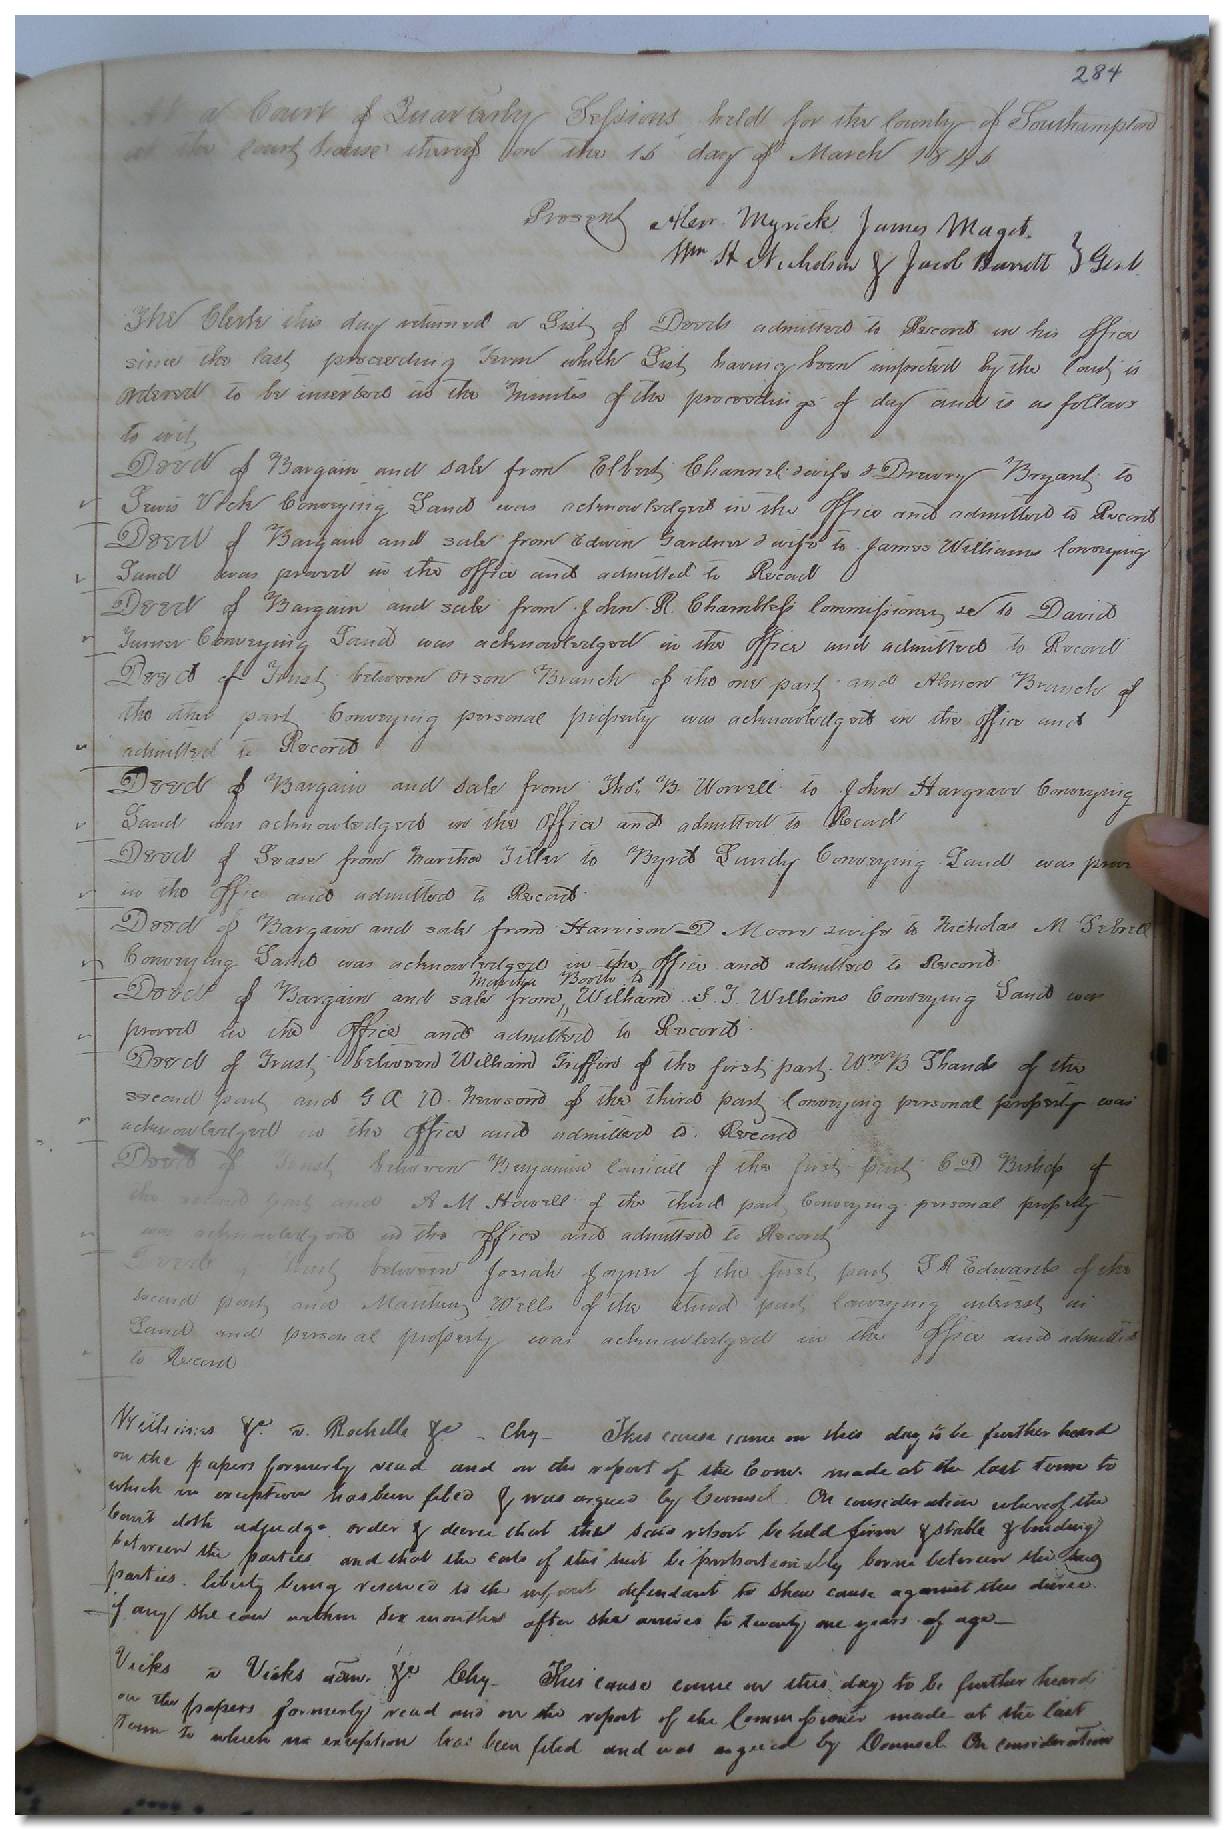 284
At a Court of Quarterly Sessions held for the County of Southampton
at the Courthouse thereof on the 16 day of March 1846
Present Alexr. Myrick James Maget.
Wm H Nicholson & Jacob Barrett } Gent.
The Clerk this day returned a List of Deeds admitted to Record in his office
since the last preceeding Term which List having been inspected by the Court is
ordered to be inserted in the Minutes of the proceedings of day and is as follows
to wit
Deed of Bargain and sale from Elbert Channel & wife & Drewry Bryant to
Lewis Vick Conveying Land was acknowledged in the Office and admitted to Record
Deed of Bargain and sale from Edwin Gardner & wife to James Williams Conveying
Land was proved in the office and admitted to Record
Deed of Bargain and sale from John R. Chambless Commissioner &c to David
Turner Conveying Land was acknowledged in the Office and admitted to Record
Deed of Trust between Orson Branch of the one part and Almon Branch of
the other part Conveying personal property was acknowledged in the office and
admitted to Record
Deed of Bargain and sale from Thos. B. Worrell to John Hargrave Conveying
Land was acknowledged in the Office and admitted to Record
Deed of Lease from Martha Tiller to Byrd Lundy Conveying Land was prov
in the Office and admitted to Record
Deed of Bargain and sale from Harrison D Moore & wife to Nicholas M Sebrell
Conveying Land was acknowledged in the Office and admitted to Record
Martha Booth to
Deed of Bargain and sale from William S. T. Williams Conveying Land was
proved in the Office and admitted to Record
Deed of Trust between William Griffin of the first part Wm B Shands of the
second part and G A W. Newsom of the third part Conveying personal property was
acknowledged in the Office and admitted to Record
Deed of Trust between Benjamin Councill of the first part C D Bishop of
the second part and A M Howell of the third part Conveying personal property
was acknowledged in the Office and admitted to Record
Deed of Trust between Josiah Joyner of the first part S R Edwards of the
second part and Matthew Wells of the third part Conveying interest in
Land and personal property was acknowledged in the Office and admitted
to Record
Williams &c. v. Rochelle &c - Chy - This cause came on this day to be further heard
on the papers formerly read and on the report of the Comr. made at the last term to
which no exception has been filed & was argued by Counsel. On consideration whereof the
Court doth adjudge order & decree that the said report be held firm & stable & binding
between the parties and that the costs of this suit be proportionably borne between the said
parties. liberty being reserved to the infant defendant to shew cause against this decree
if any she can within six months after she arrives to twenty one years of age -
Vicks v Vicks adm. &c Chy - This cause came on this day to be further heard
on the papers formerly read and on the report of the Commissioner made at the last
Term to which no exception has been filed and was argued by Counsel On consideration